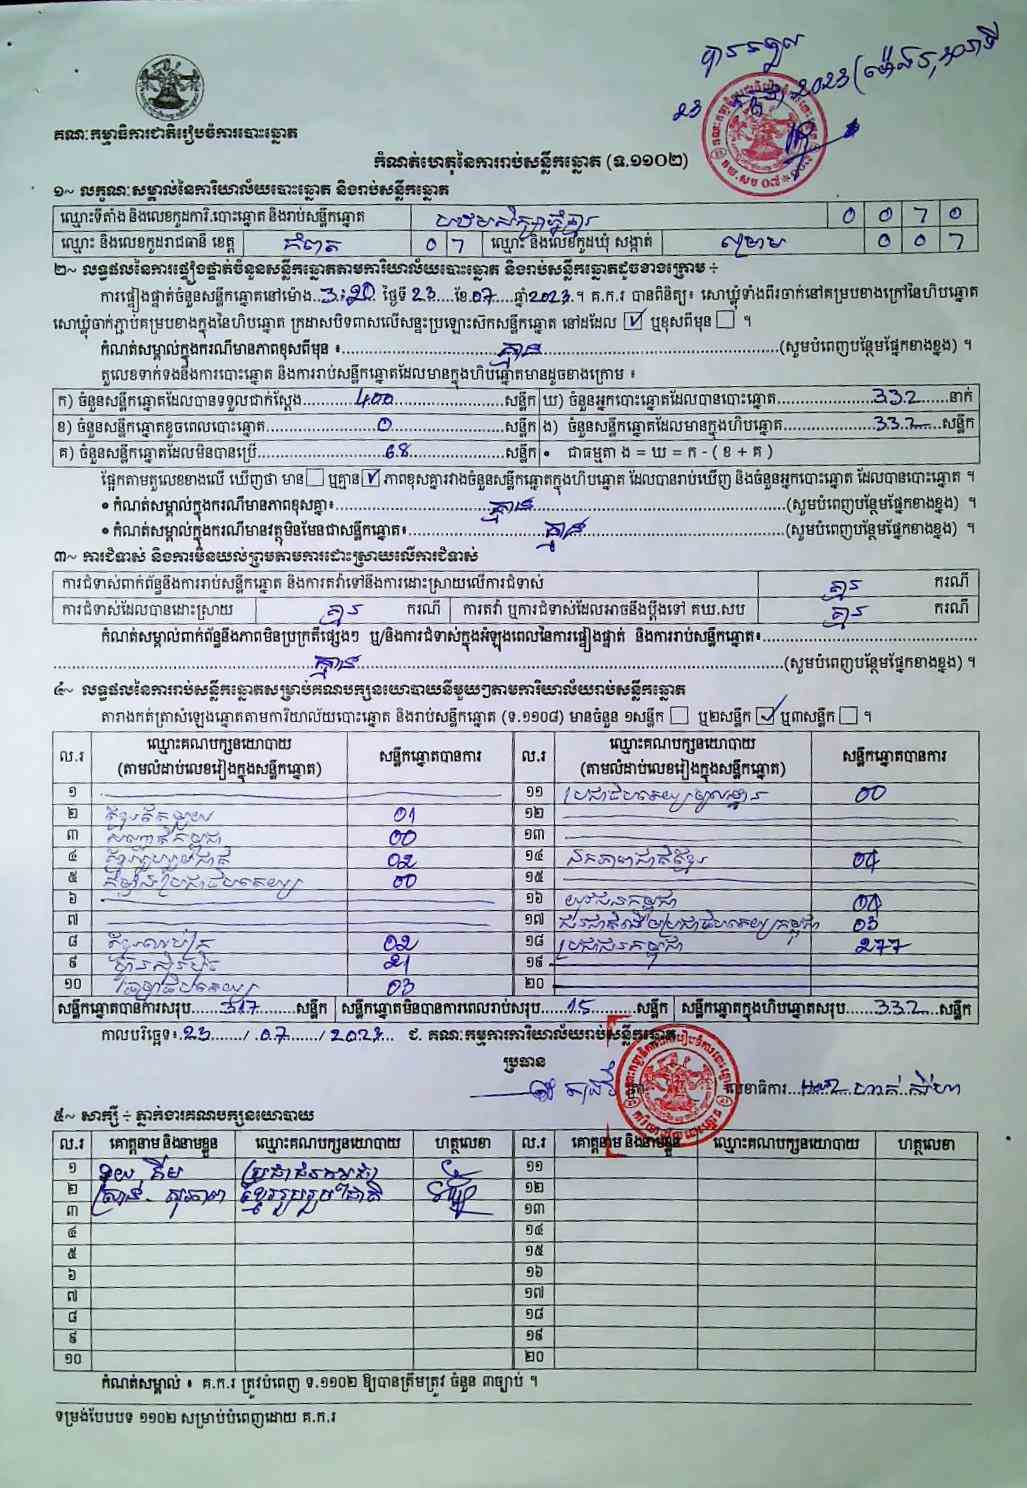 បានទទួល
23 2023 (ម៉ោង
គណៈកម្មាធិការជាតិរៀបចំការបោះឆ្នោត
កំណត់ហេតុនៃការរាប់សន្លឹកឆ្នោត (ទ.១១០២)
១~ លក្ខណៈសម្គាល់នៃការិយាល័យបោះឆ្នោត និងរាប់សន្លឹកឆ្នោត
ឈ្មោះទីតាំង និងលេខកូដការិ.បោះឆ្នោត និងរាប់សន្លឹកឆ្នោត 0 0 7 0
ឈ្មោះ និងលេខកូដរាជធានី ខេត្ត កំពត 0 7 ឈ្មោះ និងលេខកូដឃុំ សង្កាត់ 0 0 7
២~ លទ្ធផលនៃការផ្ទៀងផ្ទាត់ចំនួនសន្លឹកឆ្នោតតាមការិយាល័យបោះឆ្នោត និងរាប់សន្លឹកឆ្នោតដូចខាងក្រោម ÷
ការផ្ទៀងផ្ទាត់ចំនួនសន្លឹកឆ្នោតនៅម៉ោង...3:20 ថ្ងៃទី 23 ខែ.07 ឆ្នាំ2023.។ គ.ក.រ បានពិនិត្យ៖ សោឃ្លុំទាំងពីរចាក់នៅគម្របខាងក្រៅនៃហិបឆ្នោត
សោឃ្លុំចាក់ភ្ជាប់គម្របខាងក្នុងនៃហិបឆ្នោត ក្រដាសបិទពាសលើសន្ទះប្រឡោះស៊កសន្លឹកឆ្នោត នៅដដែល ☑ ឬខុសពីមុន ☐ ។
កំណត់សម្គាល់ក្នុងករណីមានភាពខុសពីមុន ៖ គ្មាន (សូមបំពេញបន្ថែមផ្នែកខាងខ្នង) ។
តួលេខទាក់ទងនឹងការបោះឆ្នោត និងការរាប់សន្លឹកឆ្នោតដែលមានក្នុងហិបឆ្នោតមានដូចខាងក្រោម ៖
ក) ចំនួនសន្លឹកឆ្នោតដែលបានទទួលជាក់ស្តែង 400 សន្លឹក ឃ) ចំនួនអ្នកបោះឆ្នោតដែលបានបោះឆ្នោត 332 នាក់
ខ) ចំនួនសន្លឹកឆ្នោតខូចពេលបោះឆ្នោត 0 សន្លឹក ង) ចំនួនសន្លឹកឆ្នោតដែលមានក្នុងហិបឆ្នោត 332 សន្លឹក
គ) ចំនួនសន្លឹកឆ្នោតដែលមិនបានប្រើ 68 សន្លឹក • ជាធម្មតា ង = ឃ = ក - ( ខ + គ )
ផ្អែកតាមតួលេខខាងលើ ឃើញថា មាន ☐ ឬគ្មាន ☑ ភាពខុសគ្នារវាងចំនួនសន្លឹកឆ្នោតក្នុងហិបឆ្នោត ដែលបានរាប់ឃើញ និងចំនួនអ្នកបោះឆ្នោត ដែលបានបោះឆ្នោត ។
• កំណត់សម្គាល់ក្នុងករណីមានភាពខុសគ្នា៖ គ្មាន (សូមបំពេញបន្ថែមផ្នែកខាងខ្នង) ។
• កំណត់សម្គាល់ក្នុងករណីមានវត្ថុមិនមែនជាសន្លឹកឆ្នោត៖ គ្មាន (សូមបំពេញបន្ថែមផ្នែកខាងខ្នង) ។
៣~ ការជំទាស់ និងការមិនយល់ព្រមតាមការដោះស្រាយលើការជំទាស់
ការជំទាស់ពាក់ព័ន្ធនឹងការរាប់សន្លឹកឆ្នោត និងការតវ៉ាទៅនឹងការដោះស្រាយលើការជំទាស់ គ្មាន ករណី
ការជំទាស់ដែលបានដោះស្រាយ គ្មាន ករណី ការតវ៉ា ឬការជំទាស់ដែលអាចនឹងប្តឹងទៅ គឃ.សប គ្មាន ករណី
កំណត់សម្គាល់ពាក់ព័ន្ធនឹងភាពមិនប្រក្រតីផ្សេងៗ ឬ/និងការជំទាស់ក្នុងអំឡុងពេលនៃការផ្ទៀងផ្ទាត់ និងការរាប់សន្លឹកឆ្នោត៖
គ្មាន (សូមបំពេញបន្ថែមផ្នែកខាងខ្នង) ។
៤~ លទ្ធផលនៃការរាប់សន្លឹកឆ្នោតសម្រាប់គណបក្សនយោបាយនីមួយៗតាមការិយាល័យរាប់សន្លឹកឆ្នោត
តារាងកត់ត្រាសំឡេងឆ្នោតតាមការិយាល័យបោះឆ្នោត និងរាប់សន្លឹកឆ្នោត (ទ.១១០៨) មានចំនួន ១សន្លឹក ☐ ឬ២សន្លឹក ☑ ឬ៣សន្លឹក ☐ ។
ល.រ ឈ្មោះគណបក្សនយោបាយ (តាមលំដាប់លេខរៀងក្នុងសន្លឹកឆ្នោត) សន្លឹកឆ្នោតបានការ ល.រ ឈ្មោះគណបក្សនយោបាយ (តាមលំដាប់លេខរៀងក្នុងសន្លឹកឆ្នោត) សន្លឹកឆ្នោតបានការ
១ ១១ ប្រជាធិបតេយ្យមូលដ្ឋាន 00
២ 01 ១២
៣ 00 ១៣
៤ ខ្មែររួបរួមជាតិ 02 ១៤ ឯកភាពជាតិខ្មែរ 04
៥ 00 ១៥
៦ ១៦ យុវជនកម្ពុជា 04
៧ ១៧ 03
៨ 02 ១៨ ប្រជាជនកម្ពុជា 277
៩ 21 ១៩
១០ 03 ២០
សន្លឹកឆ្នោតបានការសរុប 317 សន្លឹក សន្លឹកឆ្នោតមិនបានការពេលរាប់សរុប 15 សន្លឹក សន្លឹកឆ្នោតក្នុងហិបឆ្នោតសរុប 332 សន្លឹក
កាលបរិច្ឆេទ៖ 23 / 07 / 2023 ជ. គណៈកម្មការការិយាល័យរាប់សន្លឹកឆ្នោត
ប្រធាន
លេខាធិការ
៥~ សាក្សី ÷ ភ្នាក់ងារគណបក្សនយោបាយ
ល.រ គោត្តនាម និងនាមខ្លួន ឈ្មោះគណបក្សនយោបាយ ហត្ថលេខា ល.រ គោត្តនាម និងនាមខ្លួន ឈ្មោះគណបក្សនយោបាយ ហត្ថលេខា
១ ប្រជាជនកម្ពុជា ១១
២ ខ្មែររួបរួមជាតិ ១២
៣ ១៣
៤ ១៤
៥ ១៥
៦ ១៦
៧ ១៧
៨ ១៨
៩ ១៩
១០ ២០
កំណត់សម្គាល់ ៖ គ.ក.រ ត្រូវបំពេញ ទ.១១០២ ឱ្យបានត្រឹមត្រូវ ចំនួន ៣ច្បាប់ ។
ទម្រង់បែបបទ ១១០២ សម្រាប់បំពេញដោយ គ.ក.រ